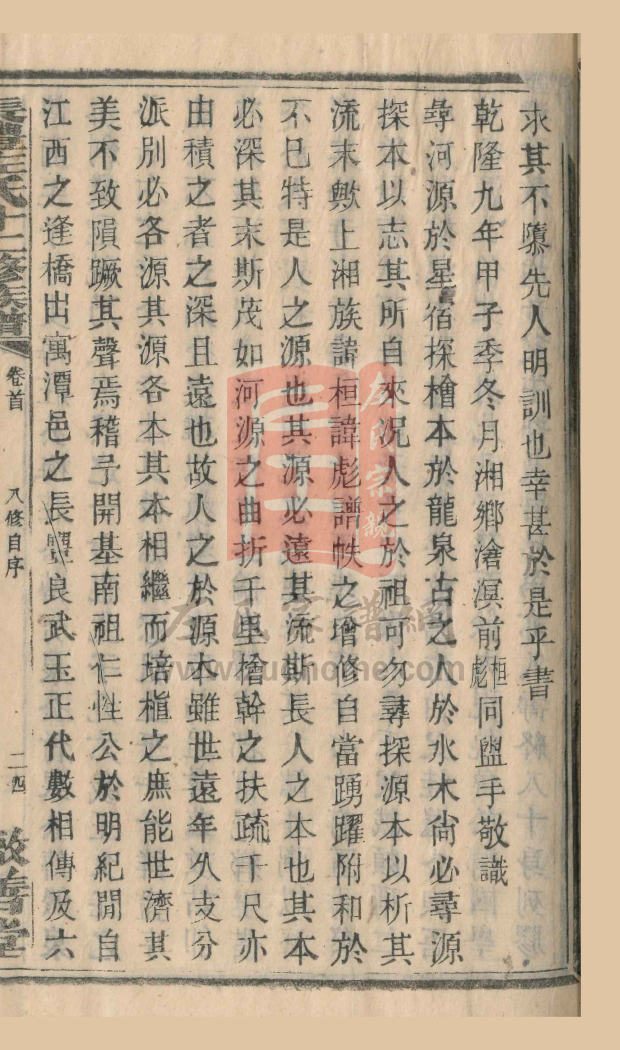 求其不隳先人明訓也幸甚於是乎書
乾隆九年甲子季冬月湘鄉滄溟前桓彪同盥手敬識
尋河源於星宿探檜本於龍泉古之人於水木尙必尋源
探本以志其所自來況人之於祖可勿尋探源本以析其
流末歟上湘族諱桓諱彪譜帙之增修自當踴躍附和於
不已特是人之源也其源必遠其流斯長人之本也其本
必深其末斯茂如河源之曲折千里檜幹之扶疏千尺亦
由積之者之深且遠也故人之於源本雖世遠年久支分
派別必各源其源各本其本相繼而培植之庶能世濟其
美不致隕蹶其聲焉稽予開基南祖仁性公於明紀閒自
江西之逢橋出寓潭邑之長豐良武玉正代數相傳及六
長豐左氏十二修族譜
卷首
八修自序
二四
敬善堂
左氏宗親
左氏家譜網
www.zuohome.com